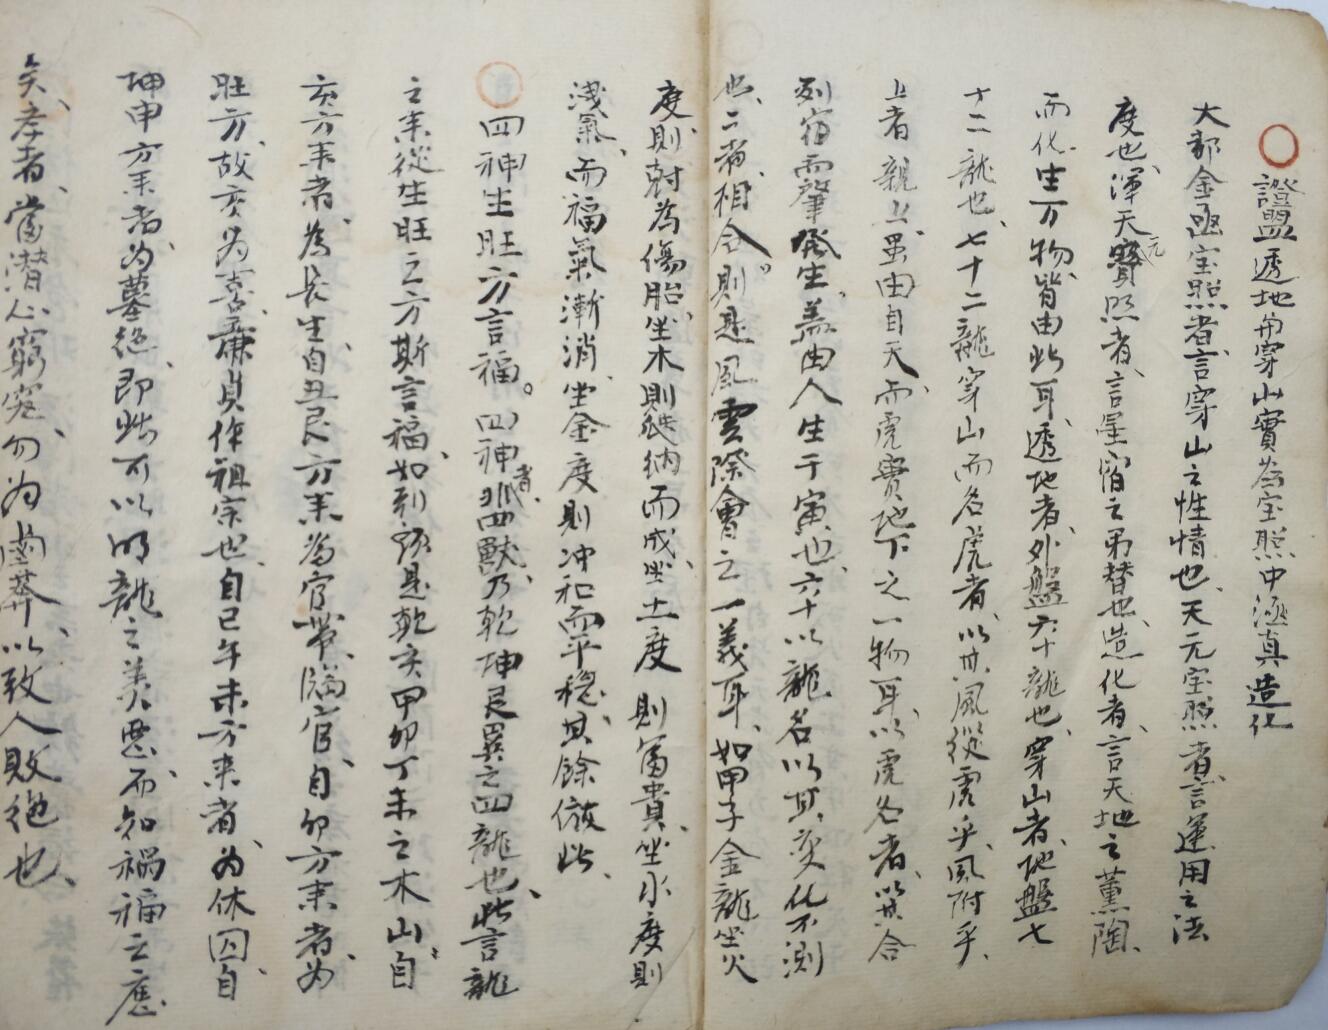 證盟透地與穿山實為宝照中涵真造化
大都金函宝照者言穿山之性情也天元宝照者言運用之法
度也渾天寶元照者言星宿之另替也造化者言天地之薰陶
而化生万物皆由此耳透地者外盤六十龍也穿山者地盤七
十二龍也七十二龍穿山而名虎者以其風從虎乎風附乎
上者親上虽由自天而虎實地下之一物耳以虎名者以其合
列宿而肇發生盖由人生于寅也六十以龍名以其变化不測
也二者相合則是風雲際會之一義耳如甲子金龍坐火
度則尅為傷胎坐木則继納而成坐土度則富貴坐水度則
洩氣而福氣漸消坐金度則冲和而平稳其餘倣此
四神生旺方言福四神者非四獸乃乾坤艮巽之四龍也此言龍
之来從生旺之方斯言福如到頭是乾亥甲卯丁未之木山自
亥方来者為長生自丑艮方来為官帶臨官自卯方来者为
旺方故亥为喜廉貞作祖宗也自巳午未方来者为休囚自
坤申方来者为墓绝即此可以明龍之美恶而知禍福之應
矣孝者當潜心窮究勿为鹵莽以致人敗绝也